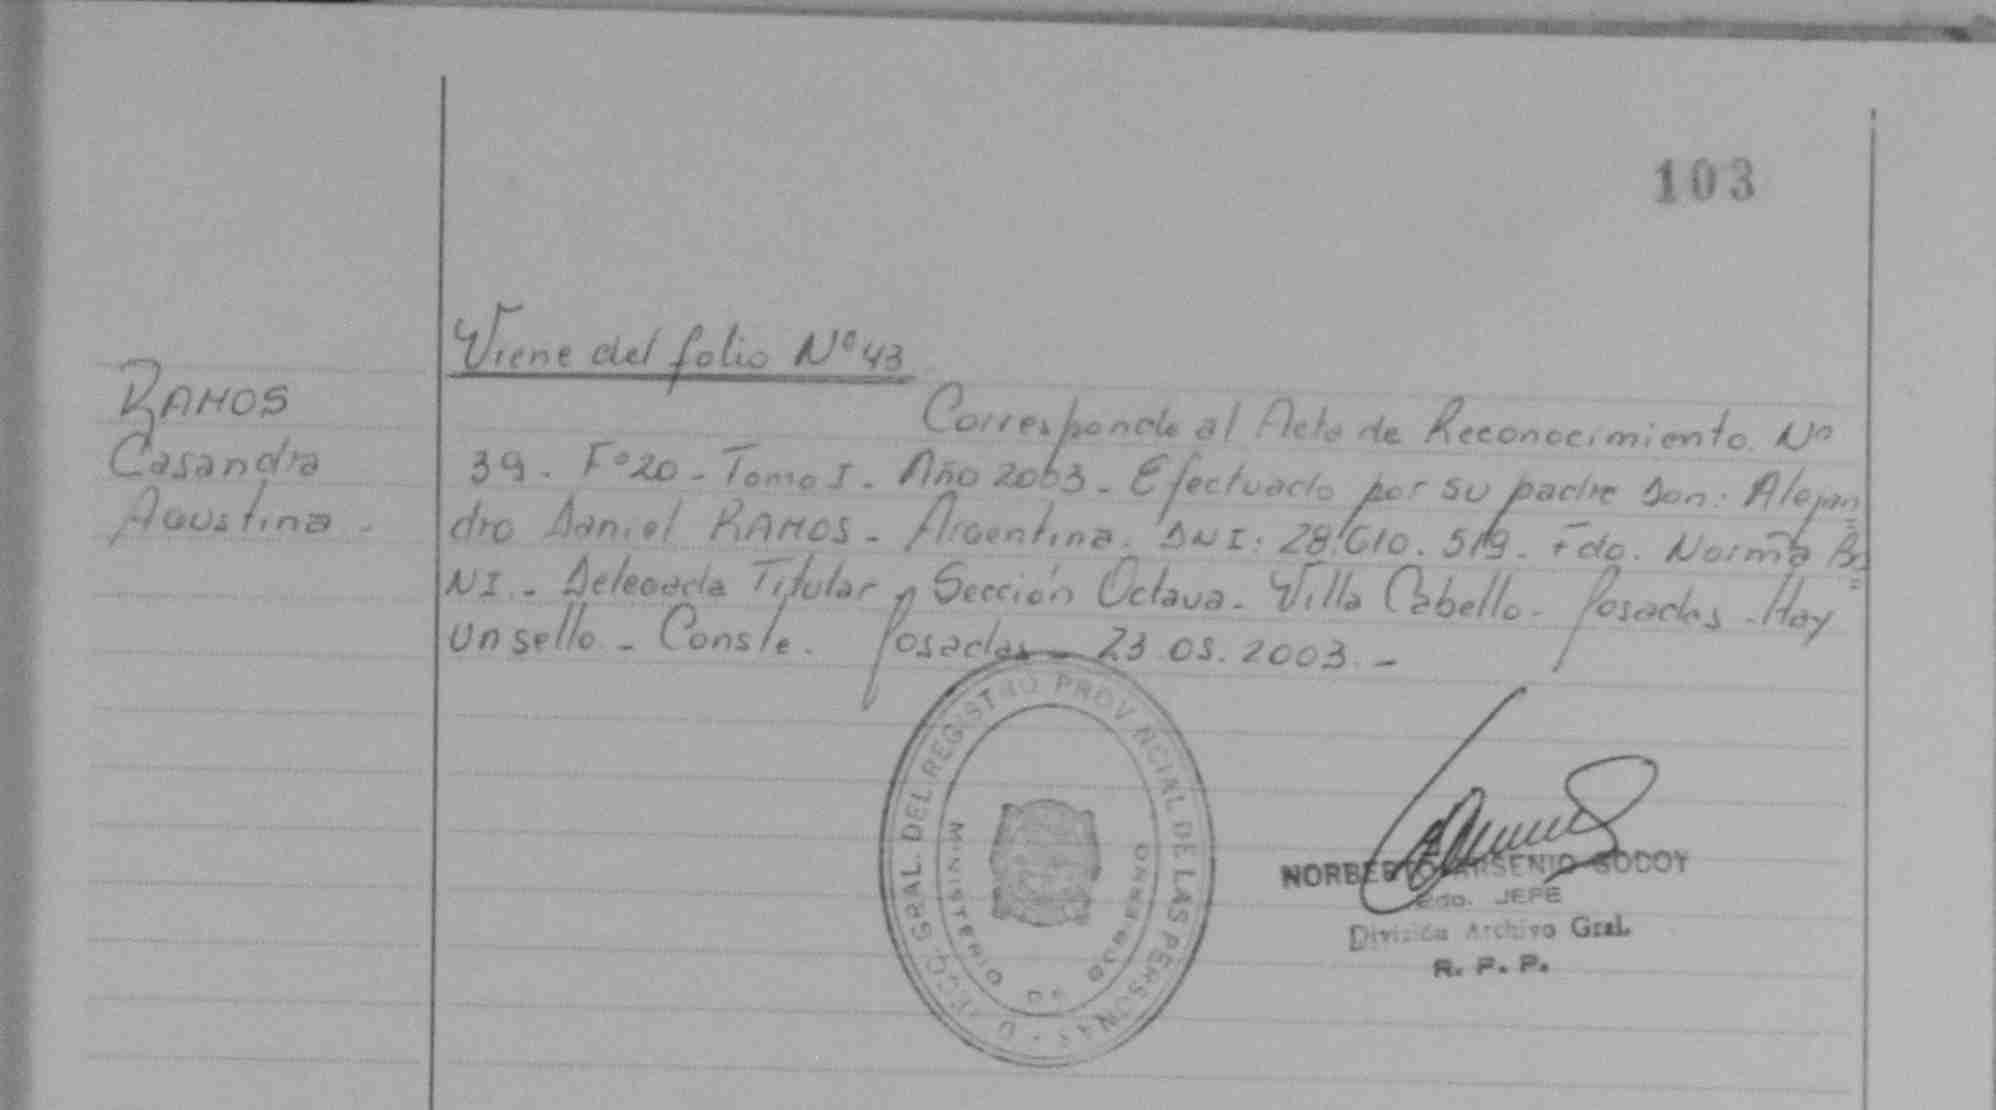 103
Viene del folio Nº 43
RAMOS
Casandra
Agustina -
Corresponde al Acta de Reconocimiento. Nº
39. Fº 20 - Tomo I. Año 2003 - Efectuado por su padre Don: Alejan
dro Daniel RAMOS - Argentina. DNI: 28.610.519. Fdo. Norma
NI. - Delegada Titular Sección Octava - Villa Cabello - Posadas - Hay
un sello - Conste. Posadas - 23.05.2003. -
GRAL. DEL REGISTRO PROVINCIAL DE LAS PERSONAS
MINISTERIO DE GOBIERNO
NORBERTO ARSENIO GODOY
JEFE
División Archivo Gral.
R. P. P.